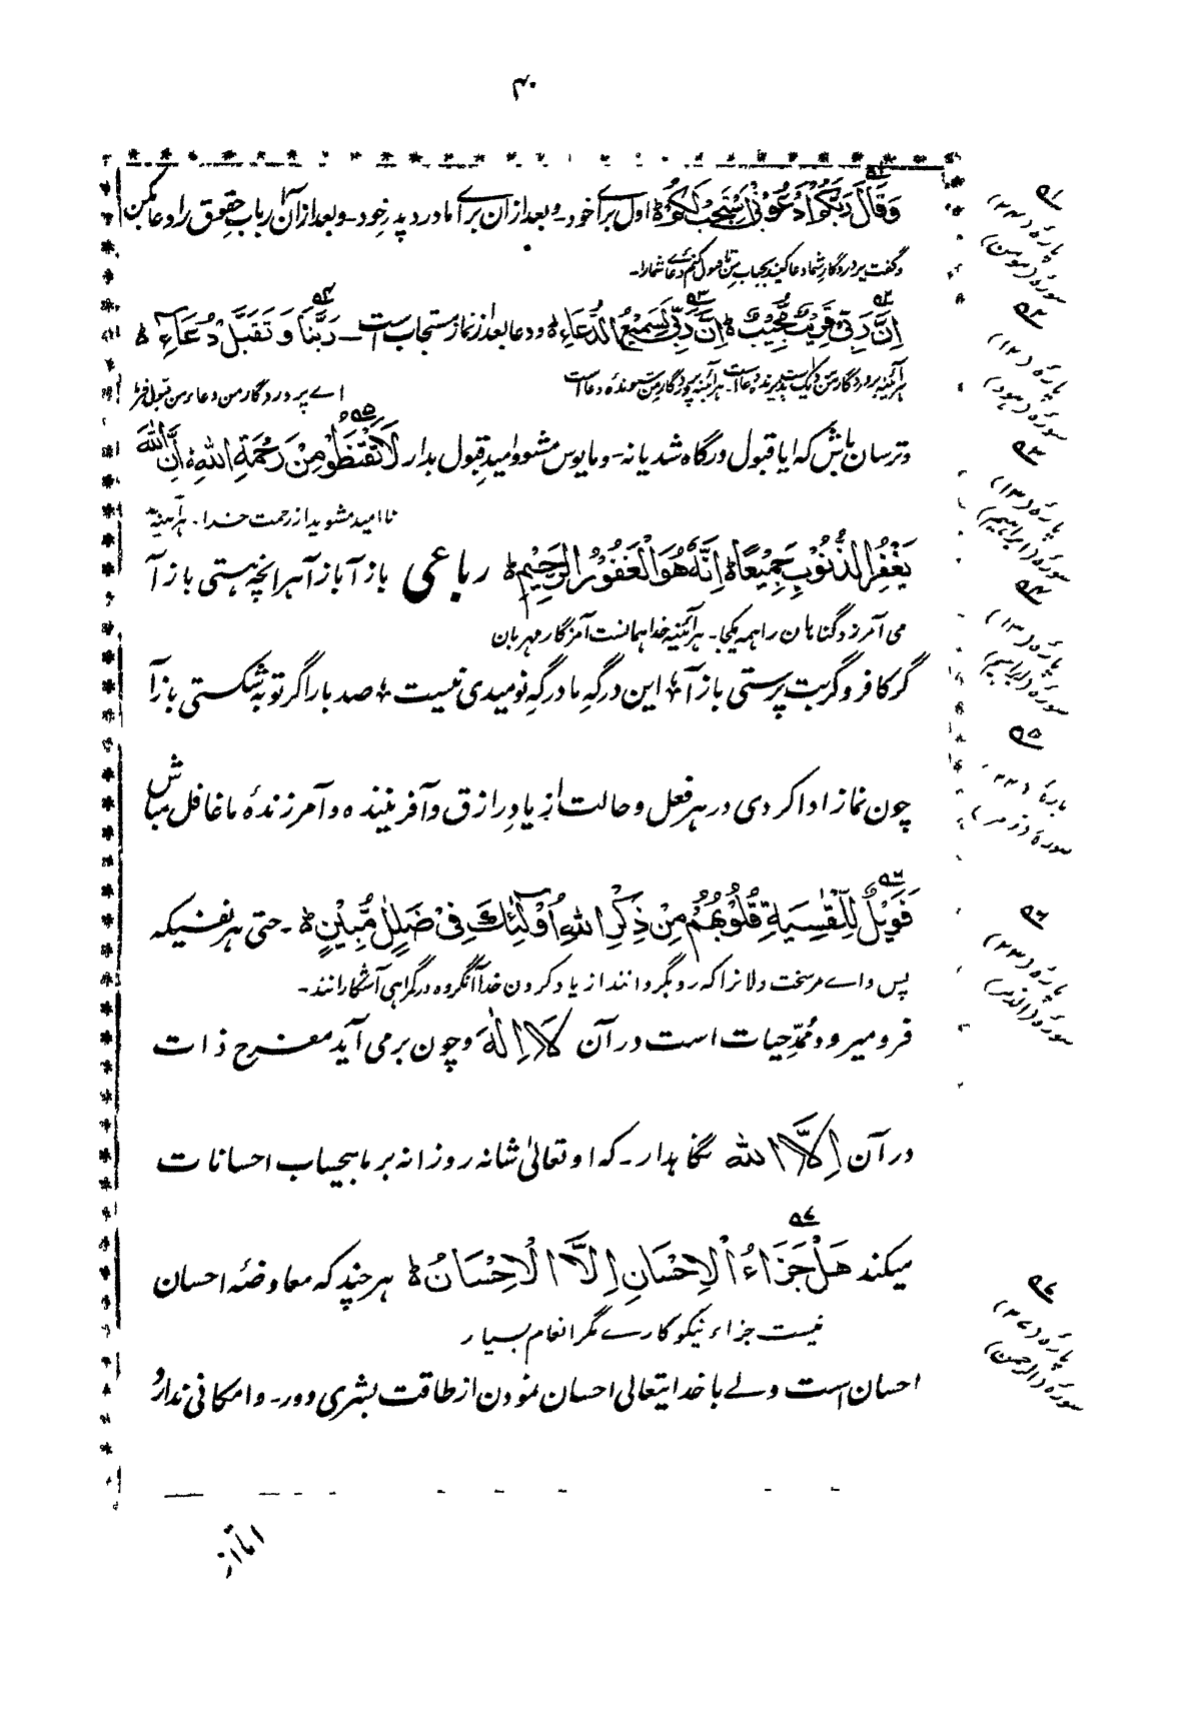 ۴۰
وَقَالَ رَبُّكُمُ ادْعُوْنِیْ اَسْتَجِبْ لَكُمْ ؕ اول برائے خود۔ و بعد ازان برائے مادر و پدر خود۔ و بعد ازان ارباب حقوق را دعا بکن
و گفت پروردگار شما دعا کنید بجناب من تا قبول کنم دعائے شمارا۔
اِنَّ رَبِّیْ قَرِیْبٌ مُّجِیْبٌ ؕ اِنَّ رَبِّیْ لَسَمِیْعُ الدُّعَاءِ ؕ و دعا بعد از نماز مستجاب است۔ رَبَّنَا وَ تَقَبَّلْ دُعَاءِ ؕ
هرآئینه پروردگار من نزدیک است پذیرنده دعا است۔ هرآئینه پروردگار من شنونده دعا است
اے پروردگار من دعاء من قبول فرما
و ترسان باش که آیا قبول درگاه شد یا نه۔ و مایوس مشو و امید قبول بدار لَا تَقْنَطُوْا مِنْ رَّحْمَةِ اللهِ ؕ اِنَّ اللهَ
نا امید مشوید از رحمت خدا۔ هرآئینه
یَغْفِرُ الذُّنُوْبَ جَمِیْعًا ؕ اِنَّهٗ هُوَ الْغَفُوْرُ الرَّحِیْمُ ؕ رباعی باز آ باز آ هر آنچه هستی باز آ
می آمرزد گناهان را همه یکجا۔ هرآئینه خدا همانست آمرزگار مهربان
گر کافر و گر بت پرستی باز آ ؛ این درگهِ ما درگهِ نومیدی نیست ؛ صد بار اگر توبه شکستی باز آ
چون نماز ادا کردی در هر فعل و حالت از یادِ رازق و آفریننده و آمرزندهٔ ما غافل مباش
فَوَیْلٌ لِّلْقٰسِیَةِ قُلُوْبُهُمْ مِنْ ذِكْرِ اللهِ اُولٰٓئِكَ فِیْ ضَلٰلٍ مُّبِیْنٍ ؕ۔ حتی هر نفسیکه
پس واے مر سخت دلانرا که رو بگردانند از یاد کردن خدا آنگروه در گمراهی آشکارانند۔
فرو میرود ممدِّ حیات است در آن لَا اِلٰهَ و چون بر می آید مفرح ذات
در آن اِلَّا الله نگاهدار۔ که او تعالیٰ شانه روزانه بر ما بیحساب احسانات
میکند هَلْ جَزَاءُ الْاِحْسَانِ اِلَّا الْاِحْسَانُ ؕ هر چند که معاوضهٔ احسان
نیست جزاء نیکوکارے مگر انعام بسیار
احسان است و لے با خدایتعالی احسان نمودن از طاقت بشری دور۔ و امکانی ندارد
۵۲
پارهٔ (۱۲)
سورهٔ (هود)
۵۳
پارهٔ (۱۳)
سورهٔ (ابراهیم)
۵۴
پارهٔ (۱۳)
سورهٔ (ابراهیم)
۵۵
سورهٔ (زمر)
۵۶
پارهٔ (۲۳)
۵۷
پارهٔ (۲۷)
سورهٔ (الرحمن)